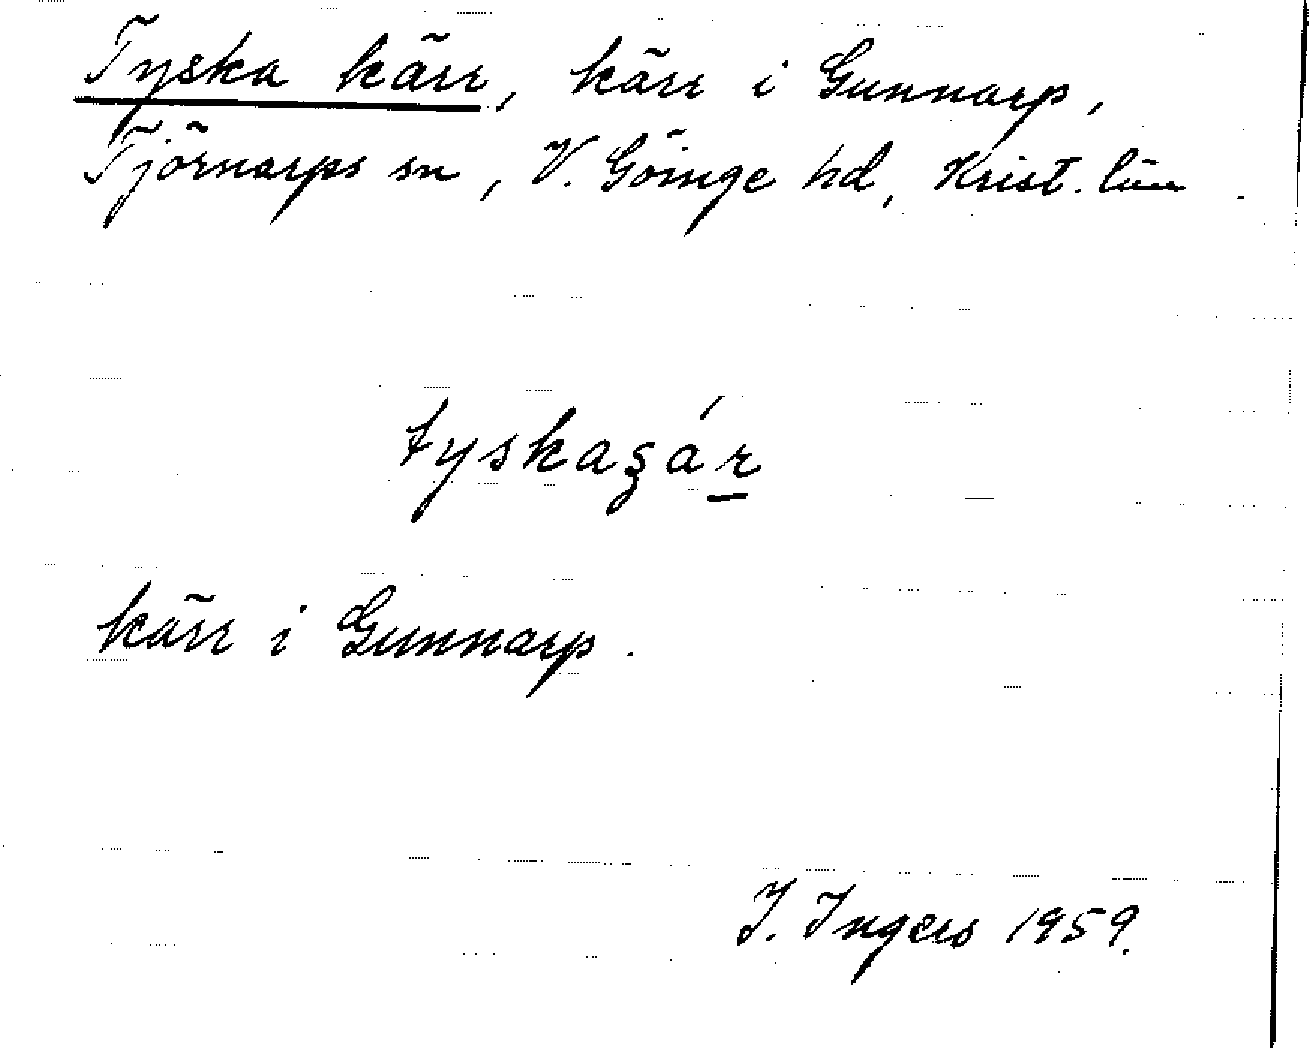 Tyska kärr, kärr i Gunnarp,
Tjörnarps sn, V. Göinge hd, Krist. län
kärr i Gunnarp.
I. Ingers 1959.